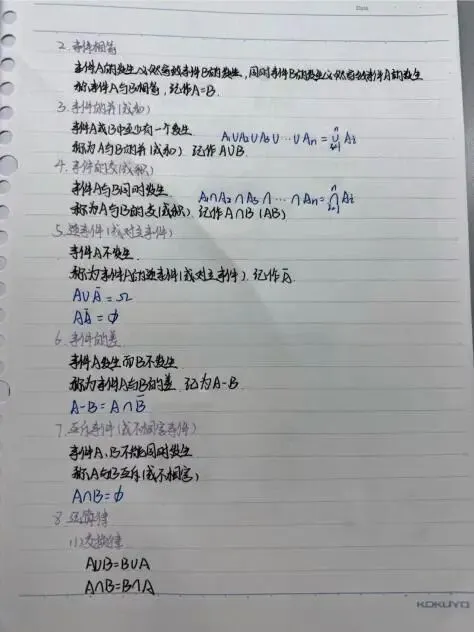 Date
2. 事件相等
事件A的发生必然导致事件B的发生,同时事件B的发生必然导致事件A的发生
称事件A与B相等,记作A=B.
3. 事件的并(或和)
事件A或B中至少有一个发生
A₁∪A₂∪A₃∪…∪Aₙ=⋃ⁿᵢ₌₁Aᵢ
称为A与B的并(或和). 记作A∪B.
4. 事件的交(或积)
事件A与B同时发生
A₁∩A₂∩A₃∩…∩Aₙ=⋂ⁿᵢ₌₁Aᵢ
称为A与B的交(或积). 记作A∩B (AB)
5. 逆事件(或对立事件)
事件A不发生.
称为事件A的逆事件(或对立事件). 记作Ā.
A∪Ā=Ω
AĀ=∅
6. 事件的差
事件A发生而B不发生
称为事件A与B的差. 记为A-B
A-B=A∩B̄
7. 互斥事件(或不相容事件)
事件A、B不能同时发生
称A与B互斥(或不相容)
A∩B=∅
8. 运算律
(1)交换律
A∪B=B∪A
A∩B=B∩A
KOKUYO